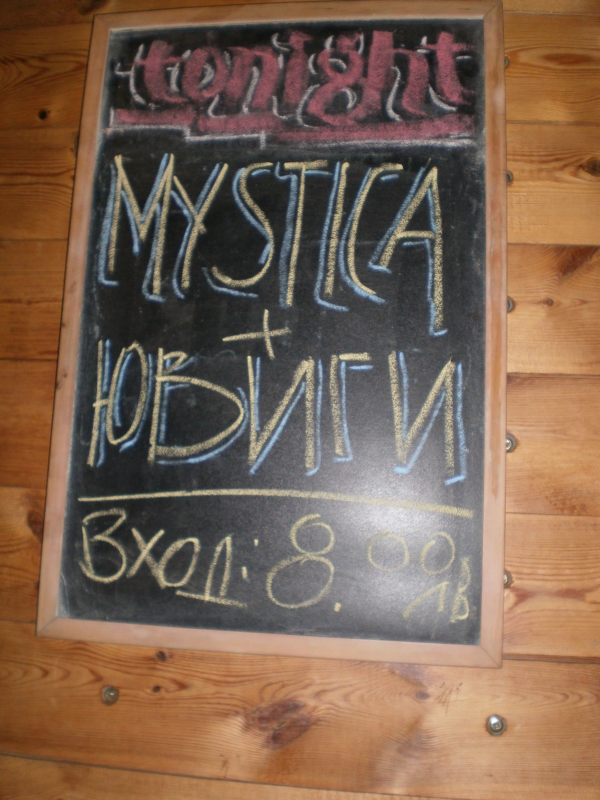 tonight
MYSTICA
+
ЮВИГИ
Вход: 8.00 лв